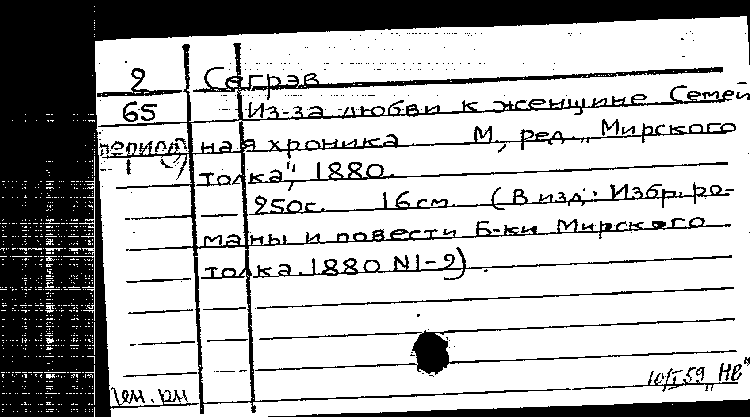 2 Сегрэв
65 Из-за любви к женщине Семей
период ная хроника М, ред. „Мирского
1 толка", 1880.
250с. 16см. (В изд.: Избр. ро-
маны и повести Б-ки Мирского
толка. 1880 N1-2).
10/I 59 „НВ"